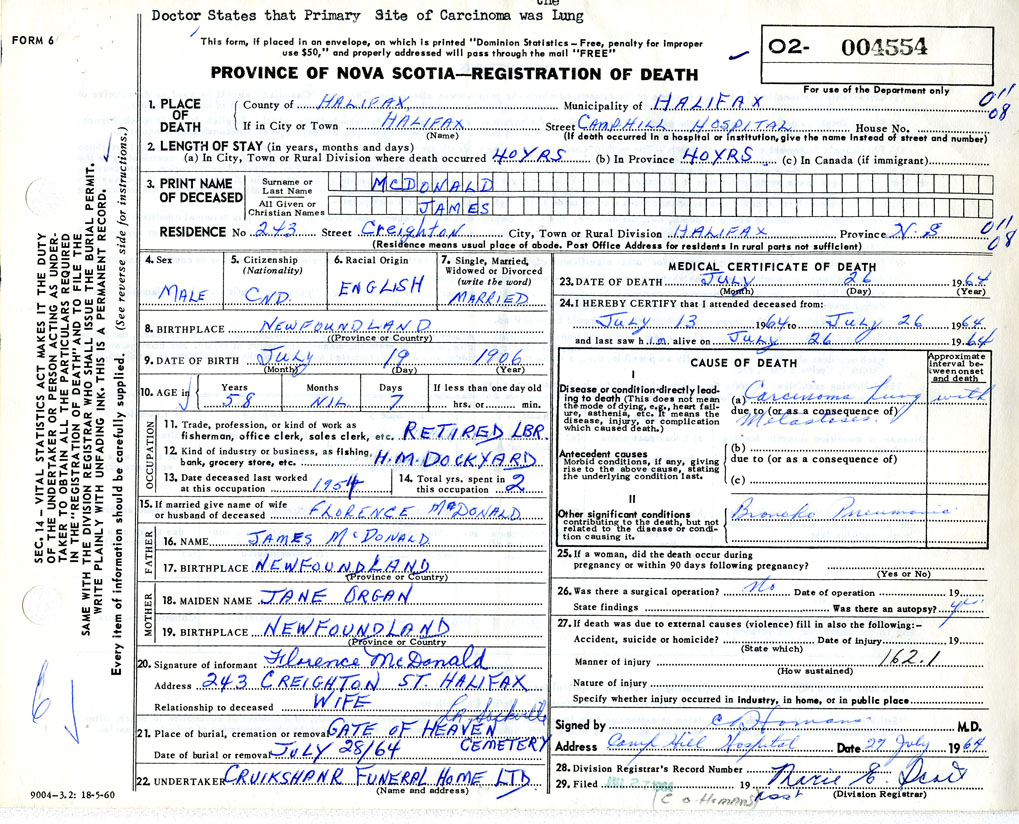 the
Doctor States that Primary Site of Carcinoma was Lung
FORM 6
This form, if placed in an envelope, on which is printed "Dominion Statistics – Free, penalty for improper
use $50," and properly addressed will pass through the mail "FREE"
O2- 004554
PROVINCE OF NOVA SCOTIA—REGISTRATION OF DEATH
For use of the Department only
011
08
1. PLACE OF DEATH
County of HALIFAX Municipality of HALIFAX
If in City or Town HALIFAX Street CAMPHILL HOSPITAL House No.
(Name) (If death occurred in a hospital or institution, give the name instead of street and number)
2. LENGTH OF STAY (in years, months and days)
(a) In City, Town or Rural Division where death occurred 40YRS (b) In Province 40YRS (c) In Canada (if immigrant)
3. PRINT NAME OF DECEASED
Surname or Last Name MCDONALD
All Given or Christian Names JAMES
RESIDENCE No 243 Street Creighton City, Town or Rural Division HALIFAX Province N.S
011
08
(Residence means usual place of abode. Post Office Address for residents in rural parts not sufficient)
4. Sex MALE
5. Citizenship (Nationality) CND.
6. Racial Origin ENGLISH
7. Single, Married, Widowed or Divorced (write the word) MARRIED
8. BIRTHPLACE NEWFOUNDLAND
(Province or Country)
9. DATE OF BIRTH July 19 1906
(Month) (Day) (Year)
10. AGE in Years 58 Months NIL Days 7 If less than one day old hrs. or min.
OCCUPATION
11. Trade, profession, or kind of work as
fisherman, office clerk, sales clerk, etc. RETIRED LBR.
12. Kind of industry or business, as fishing,
bank, grocery store, etc. H.M. DOCKYARD
13. Date deceased last worked
at this occupation 1954
14. Total yrs. spent in
this occupation 2
15. If married give name of wife
or husband of deceased FLORENCE McDONALD
FATHER
16. NAME JAMES McDONALD
17. BIRTHPLACE NEWFOUNDLAND
(Province or Country)
MOTHER
18. MAIDEN NAME JANE ORGAN
19. BIRTHPLACE NEWFOUNDLAND
(Province or Country)
20. Signature of informant Florence McDonald
Address 243 CREIGHTON ST. HALIFAX
Relationship to deceased WIFE
21. Place of burial, cremation or removal GATE OF HEAVEN CEMETERY
Date of burial or removal JULY 28/64
22. UNDERTAKER CRUIKSHANK FUNERAL HOME LTD
(Name and address)
9004-3.2: 18-5-60
MEDICAL CERTIFICATE OF DEATH
23. DATE OF DEATH July 26 1964
(Month) (Day) (Year)
24. I HEREBY CERTIFY that I attended deceased from:
July 13 1964 to July 26 1964
and last saw him alive on July 26 1964
CAUSE OF DEATH
Approximate interval between onset and death
I
Disease or condition directly leading to death (This does not mean the mode of dying, e.g., heart failure, asthenia, etc. It means the disease, injury, or complication which caused death.)
(a) Carcinoma Lung with
due to (or as a consequence of)
Metastases.
Antecedent causes
Morbid conditions, if any, giving rise to the above cause, stating the underlying condition last.
(b)
due to (or as a consequence of)
(c)
II
Other significant conditions
contributing to the death, but not related to the disease or condition causing it.
Broncho Pneumonia
25. If a woman, did the death occur during
pregnancy or within 90 days following pregnancy?
(Yes or No)
26. Was there a surgical operation? No Date of operation 19
State findings Was there an autopsy? yes
27. If death was due to external causes (violence) fill in also the following:–
Accident, suicide or homicide? Date of injury 19
(State which)
Manner of injury 162.1
(How sustained)
Nature of injury
Specify whether injury occurred in industry, in home, or in public place
Signed by C O Homans M.D.
Address Camp Hill Hospital Date 27 July 1964
28. Division Registrar's Record Number
29. Filed 19 Marie E.
(Division Registrar)
Asst
(C O HOMANS)
SEC. 14 – VITAL STATISTICS ACT MAKES IT THE DUTY
OF THE UNDERTAKER OR PERSON ACTING AS UNDER-
TAKER TO OBTAIN ALL THE PARTICULARS REQUIRED
IN THE "REGISTRATION OF DEATH" AND TO FILE THE
SAME WITH THE DIVISION REGISTRAR WHO SHALL ISSUE THE BURIAL PERMIT.
WRITE PLAINLY WITH UNFADING INK. THIS IS A PERMANENT RECORD.
Every item of information should be carefully supplied. (See reverse side for instructions.)
6